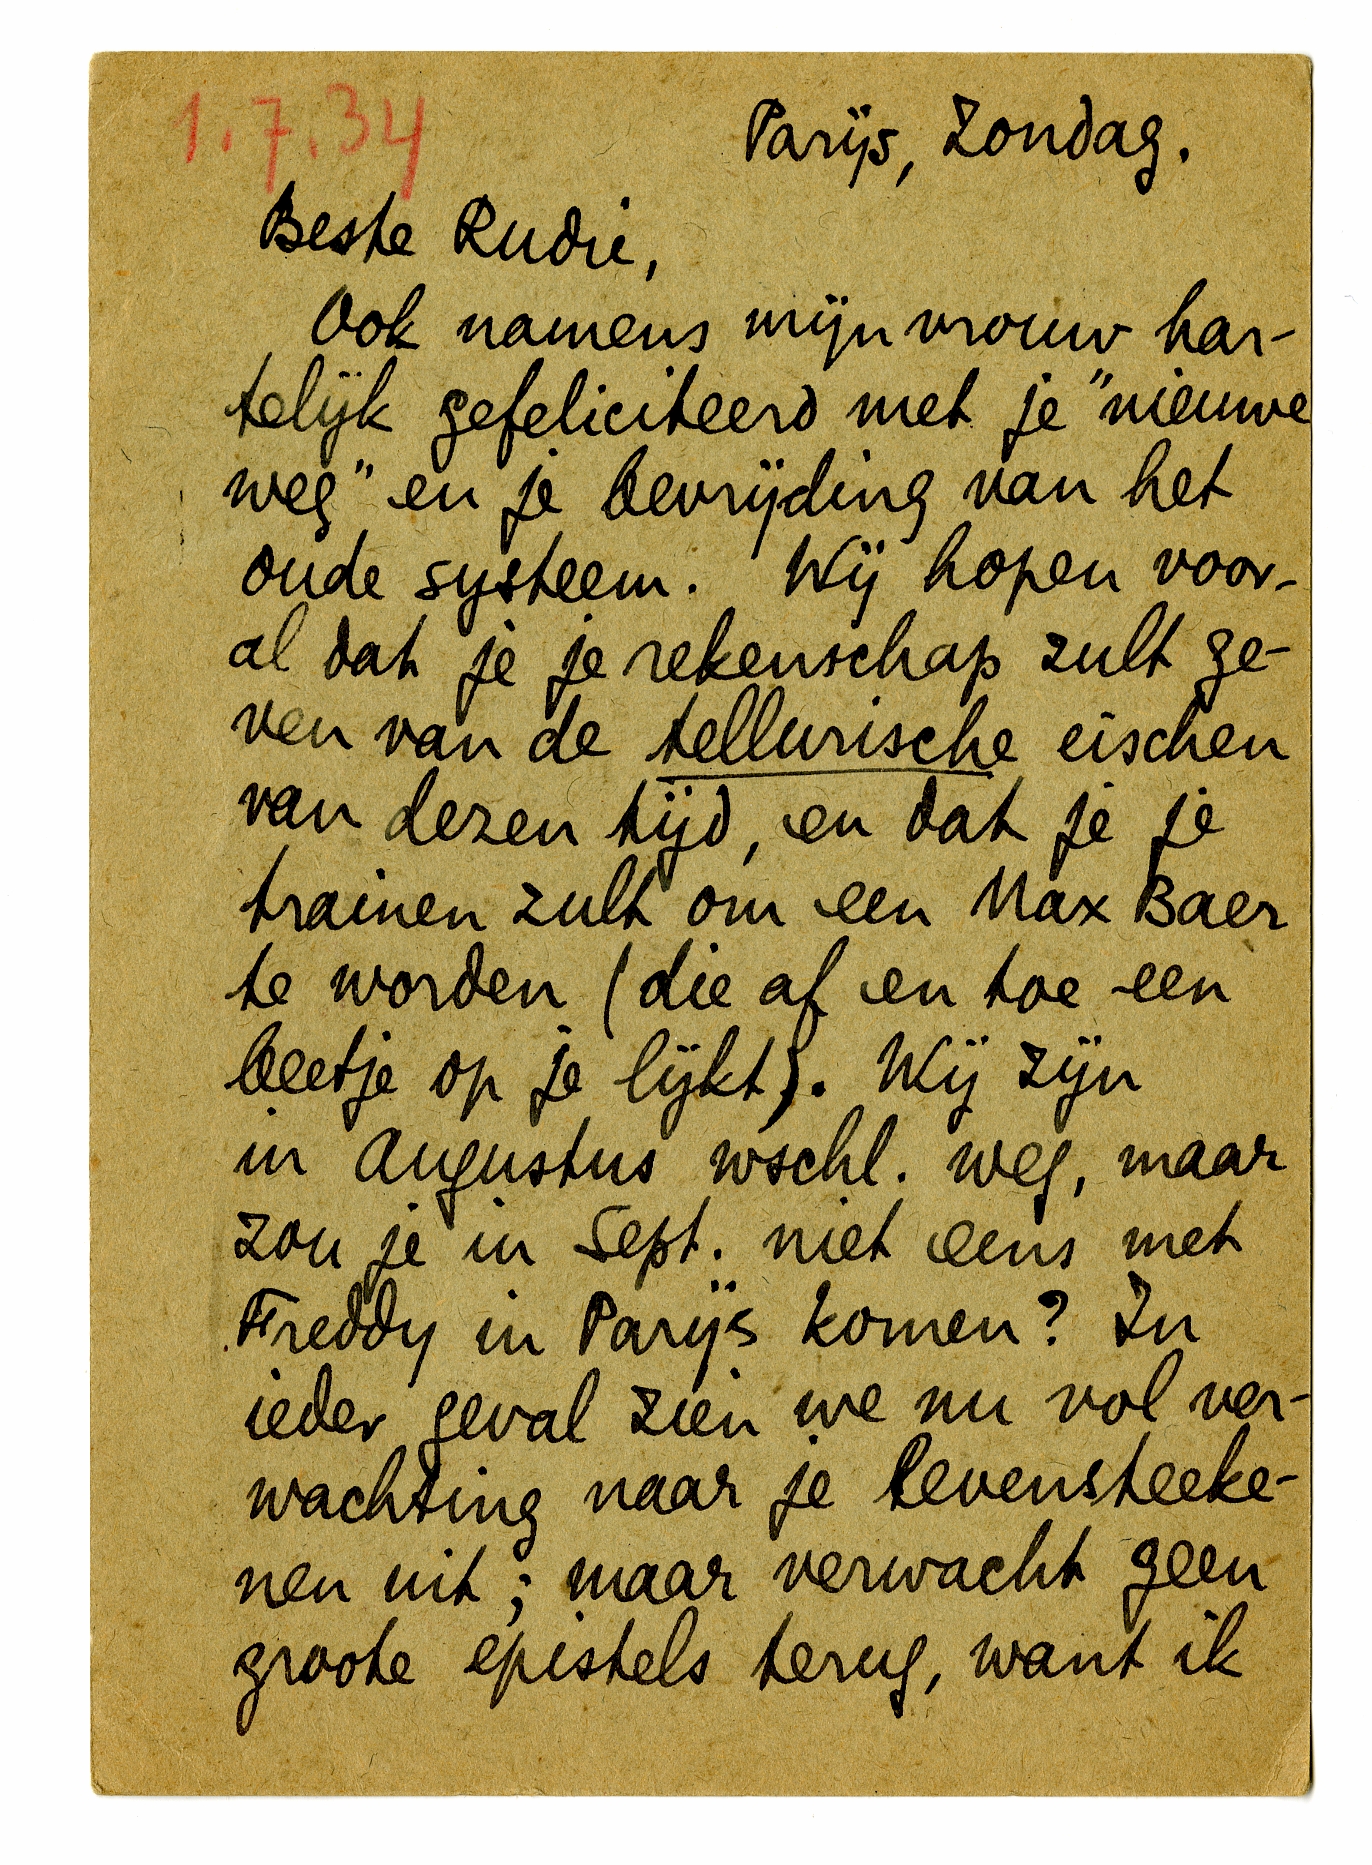 1.7.34
Parijs, Zondag.
Beste Rudie,
Ook namens mijn vrouw har-
telijk gefeliciteerd met je "nieuwe
weg" en je bevrijding van het
oude systeem. Wij hopen voor-
al dat je je rekenschap zult ge-
ven van de tellurische eischen
van dezen tijd, en dat je je
trainen zult om een Max Baer
te worden (die af en toe een
beetje op je lijkt). Wij zijn
in Augustus wschl. weg, maar
zou je in Sept. niet eens met
Freddy in Parijs komen? In
ieder geval zien we nu vol ver-
wachting naar je levensteeke-
nen uit; maar verwacht geen
groote epistels terug, want ik